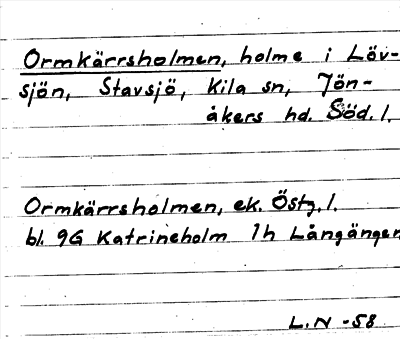 Ormkärrsholmen, holme i Löv-
sjön, Stavsjö, Kila sn, Jön-
åkers hd. Söd. l.
Ormkärrsholmen, ek. Östg. l.
bl. 9G Katrineholm 1h Långängen
L.N -58